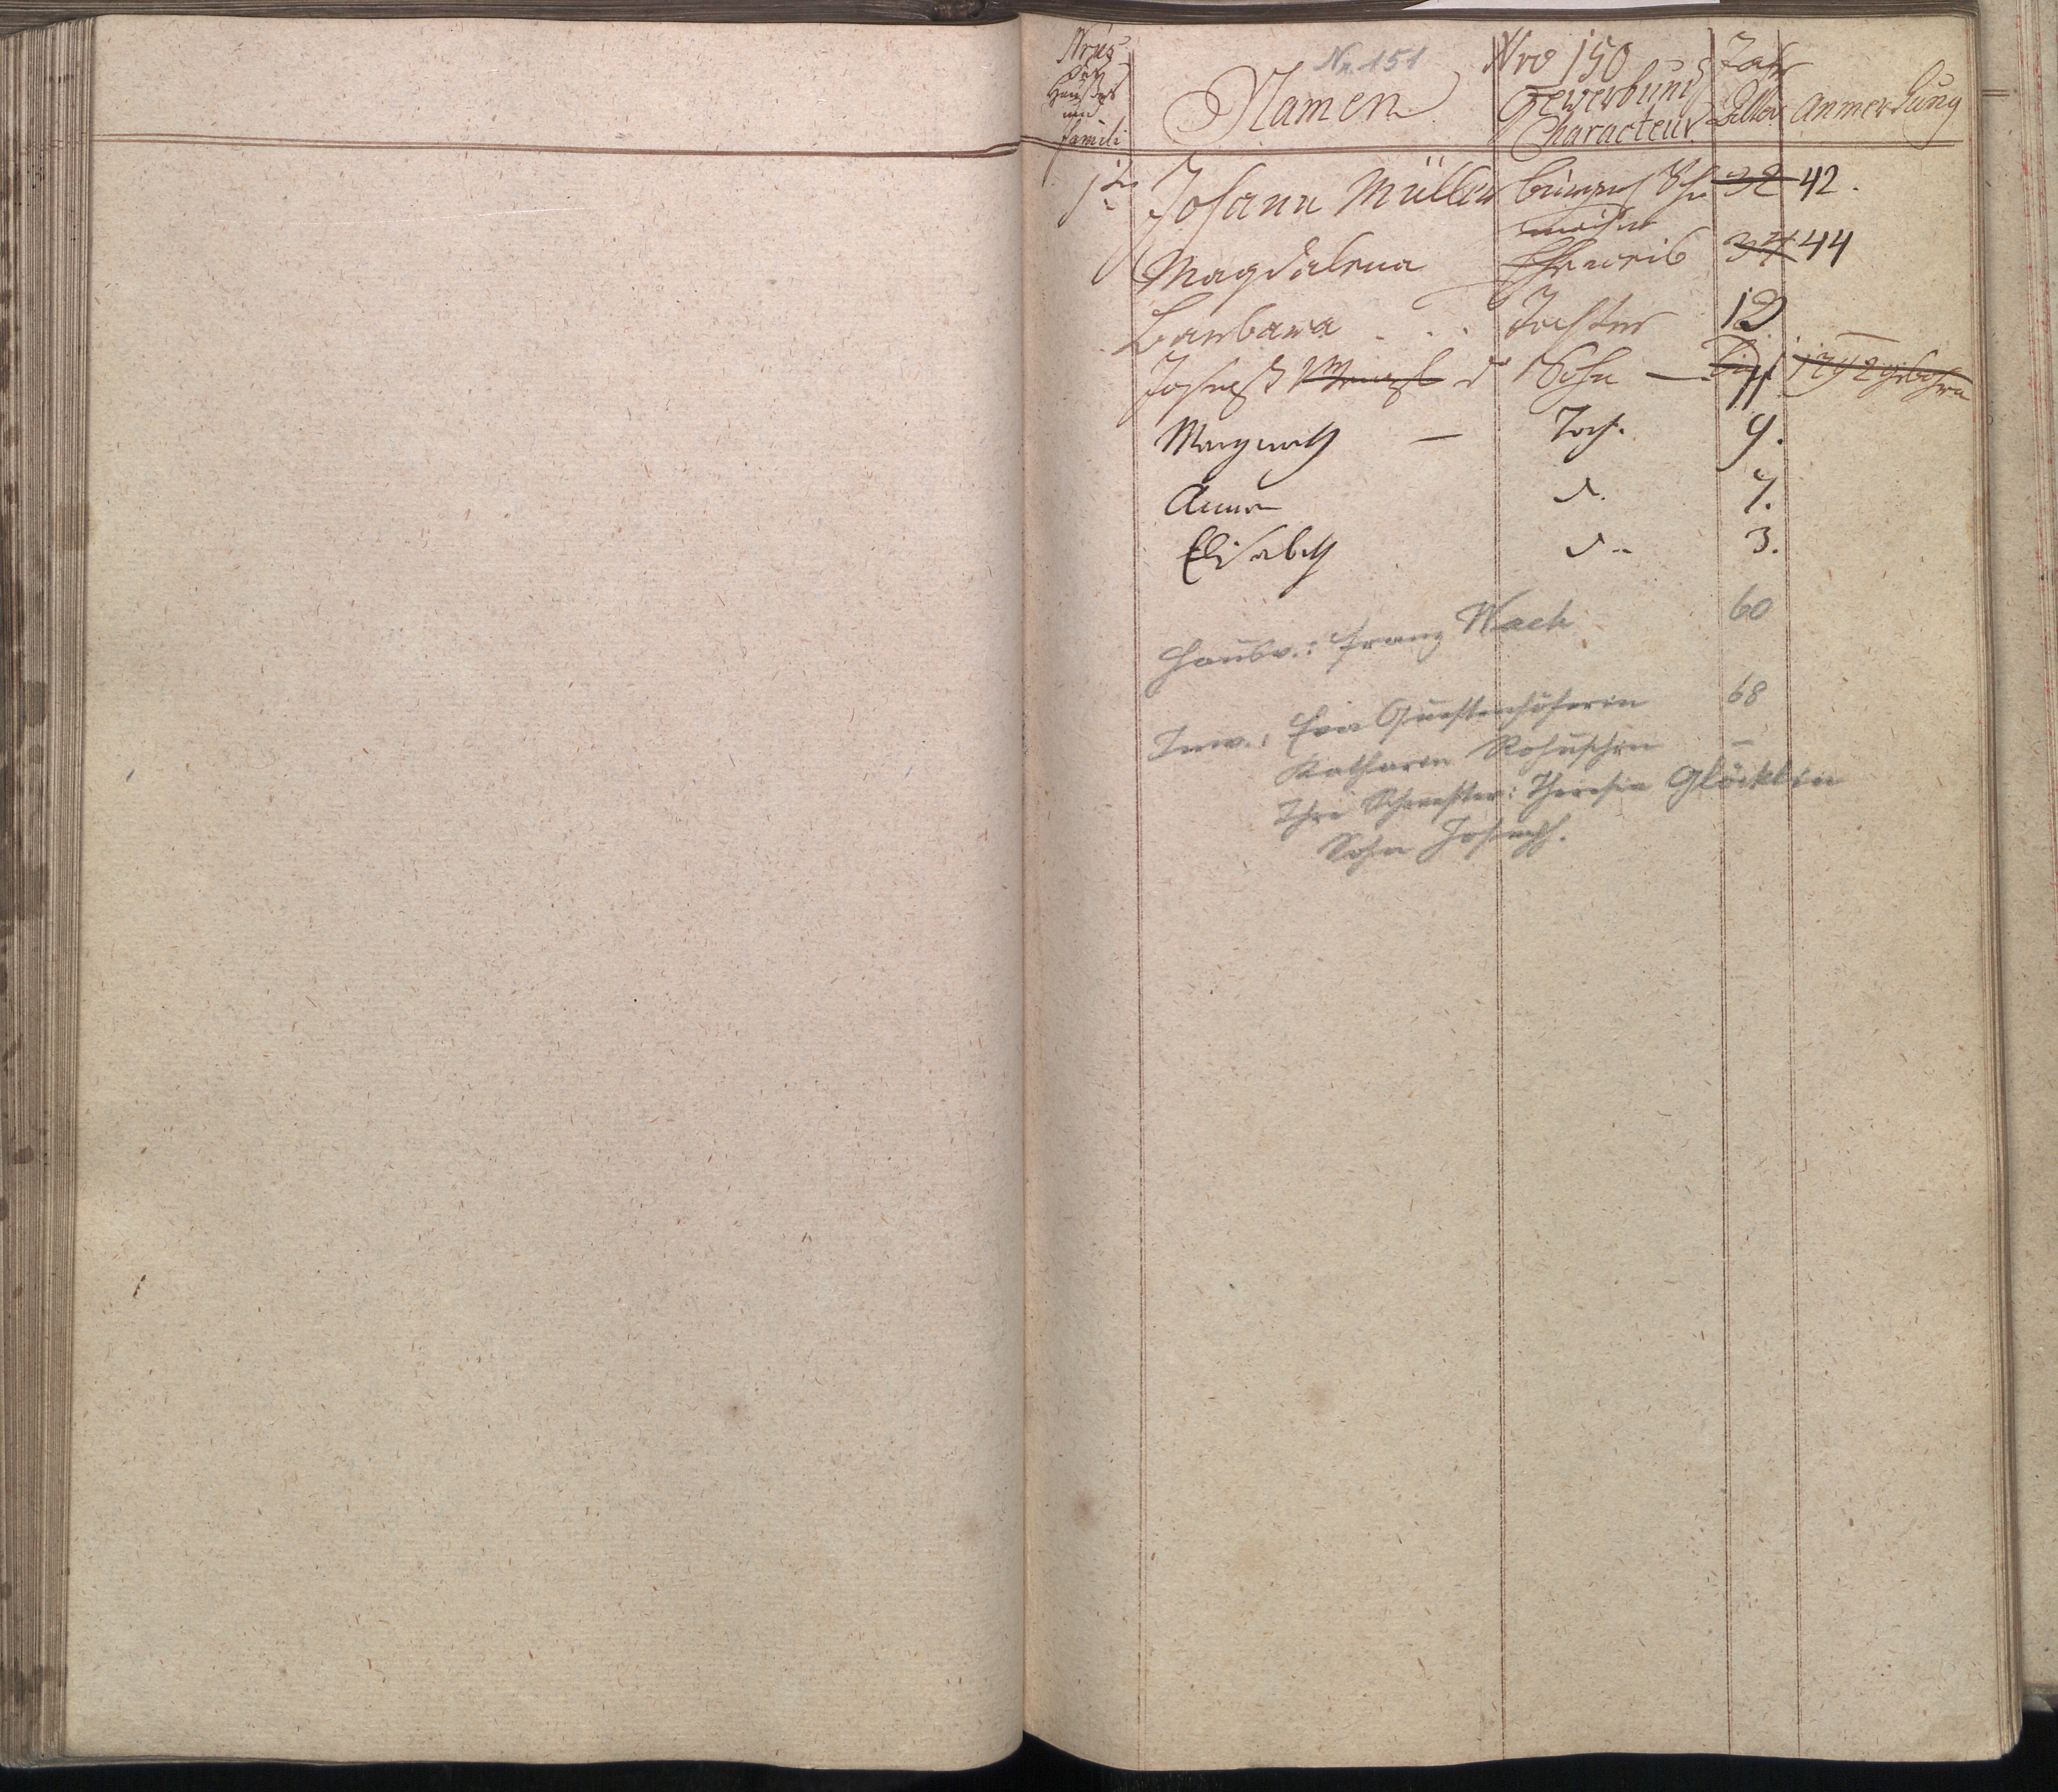 Nrus
der
Haußes
und
Famili
Nr. 151
Namen
Nro 150
Gewerbund
Characteur
Jahr
Alter
Anmerkung
1te Johann Müller bürgerl 32 42.
Magdalena Eheweib 34 44
Barbara . . . Tochter 12
Joseph d Sohn — 11. 1792 gebohren
Margareth — Toch. 9.
Anna d. 7.
Elisabeth d.. 3.
Hausv.: Franz Wach 60
Inw.: Eva 68
Katharin —
Ihre Schwester: Theresia Glöcklin
Sohn Joseph.